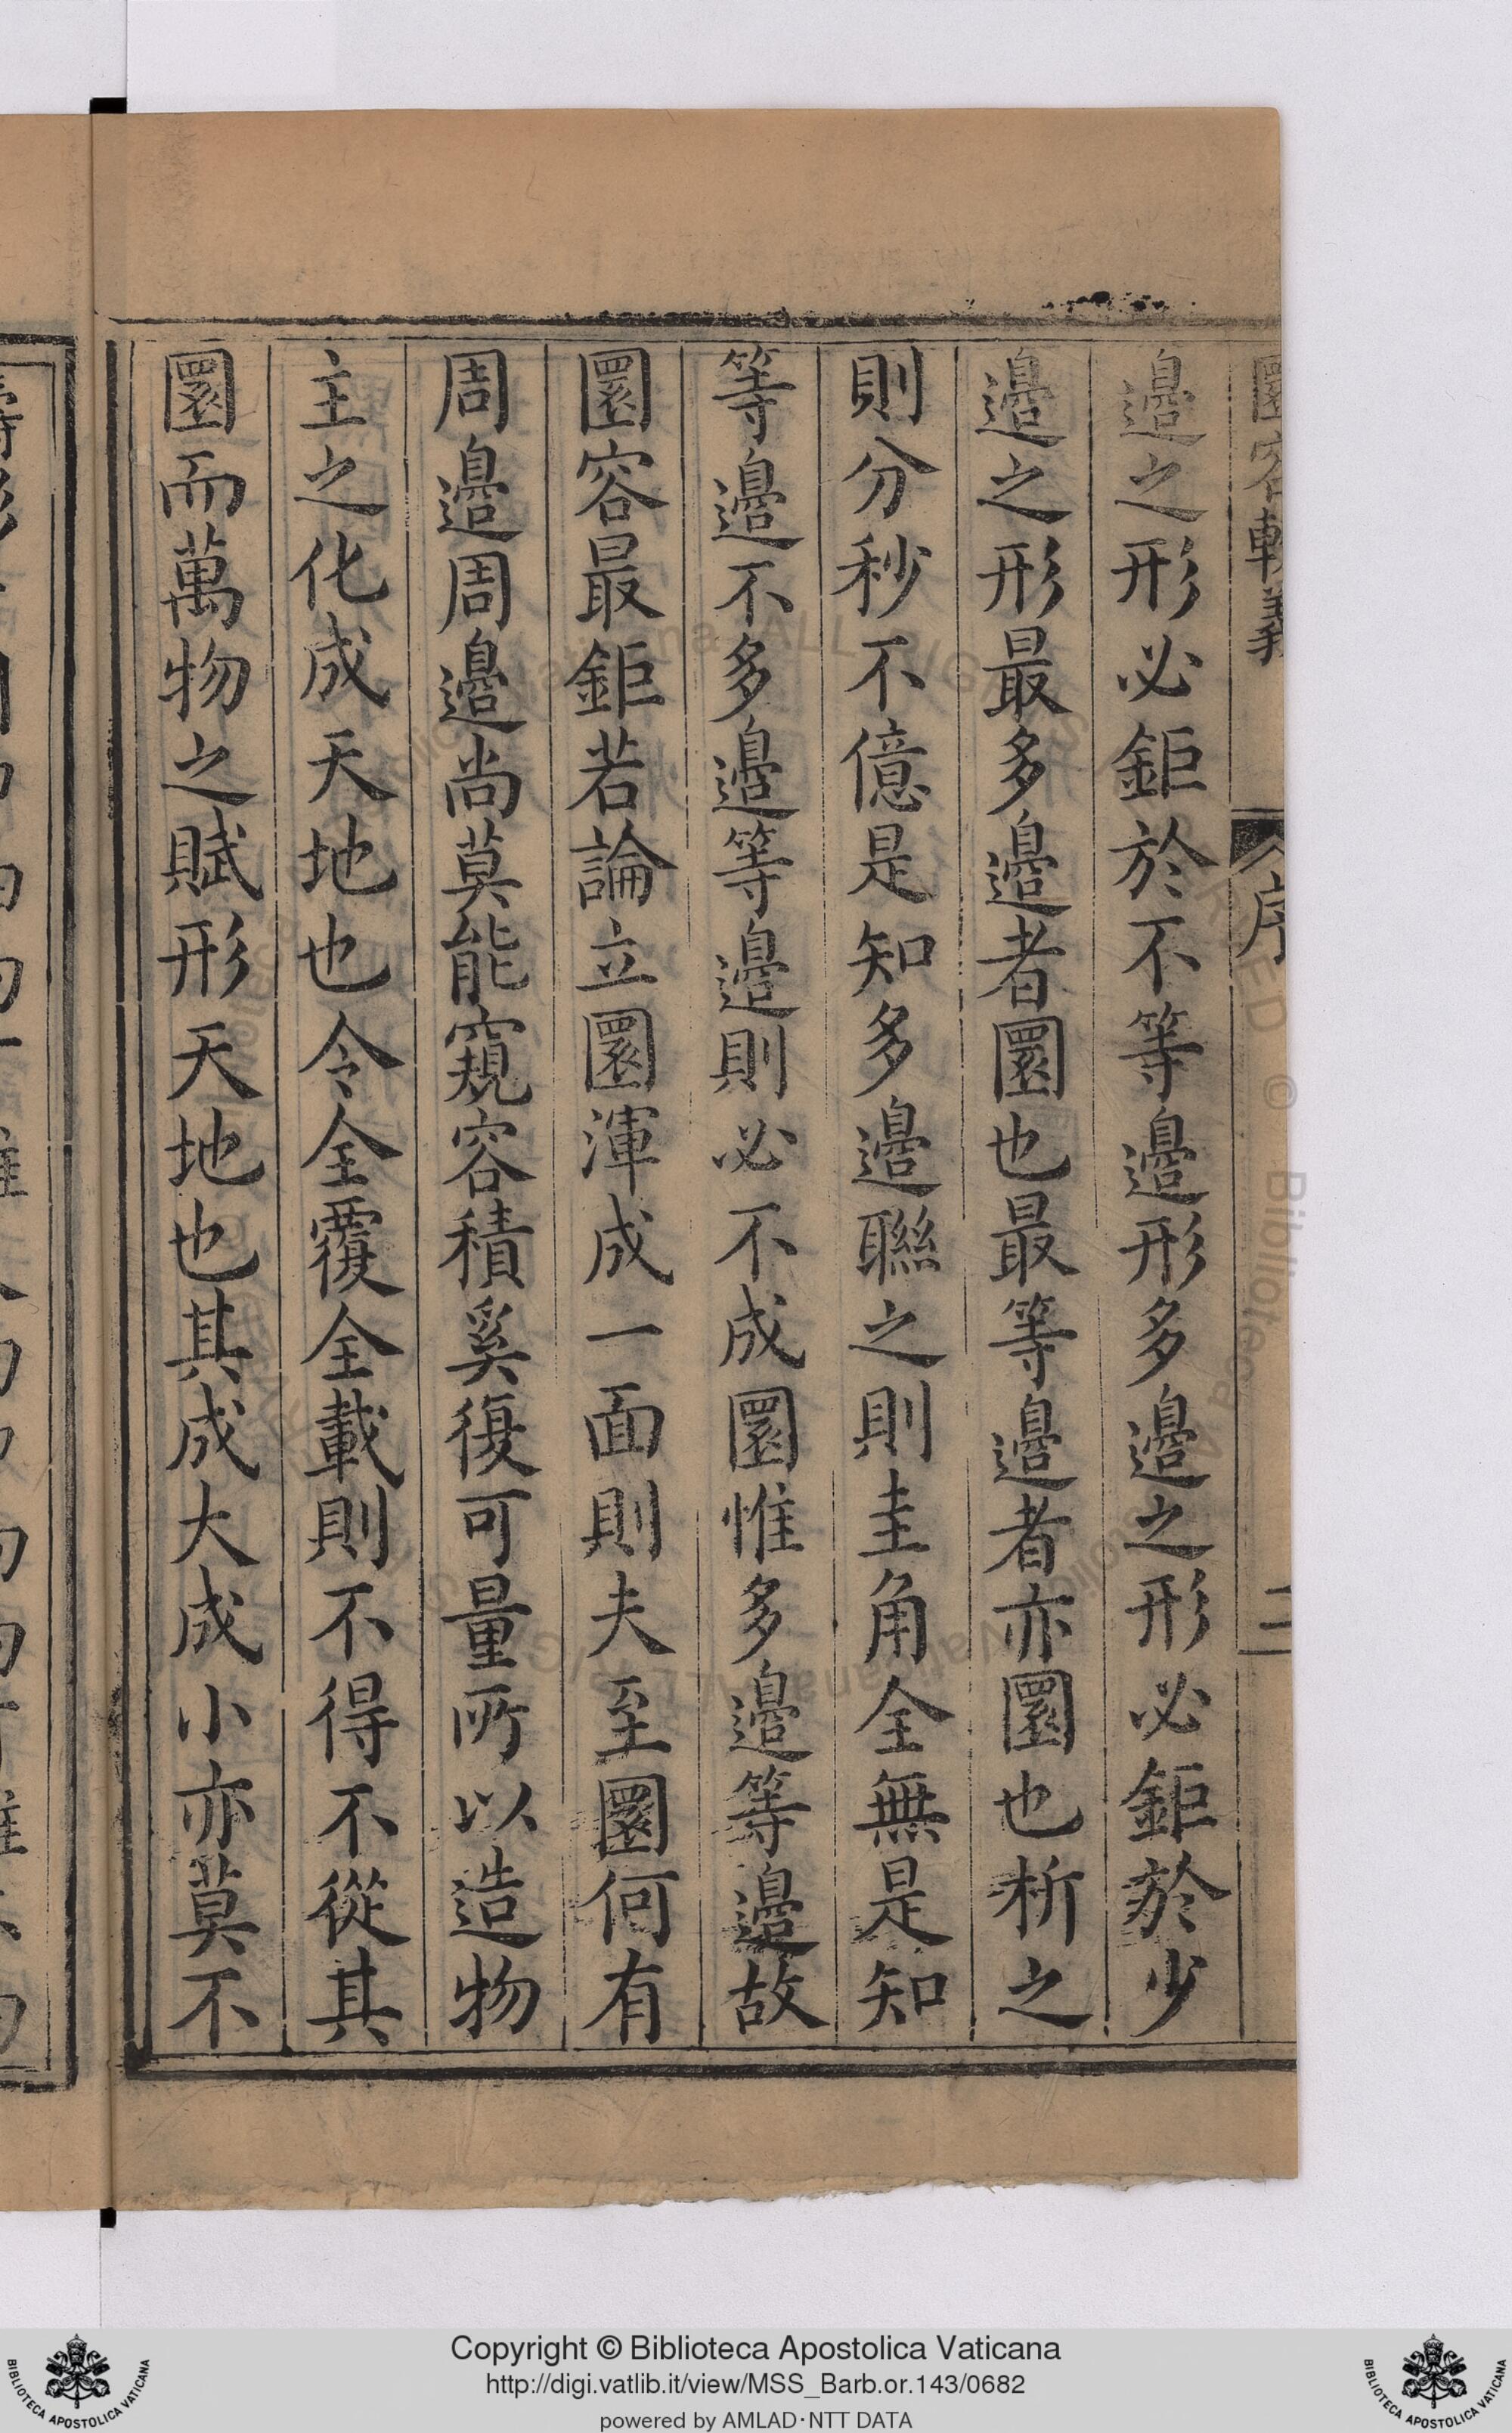 圜容較義
序
二
邉之形必鉅於不等邉形多邉之形必鉅於少
邉之形最多邉者圜也最等邉者亦圜也析之
則分秒不億是知多邉聯之則圭角全無是知
等邉不多邉等邉則必不成圜惟多邉等邉故
圜容最鉅若論立圜渾成一面則夫至圜何有
周邉周邉尚莫能窺容積奚復可量所以造物
主之化成天地也令全覆全載則不得不從其
圜而萬物之賦形天地也其成大成小亦莫不
Copyright © Biblioteca Apostolica Vaticana
http://digi.vatlib.it/view/MSS_Barb.or.143/0682
powered by AMLAD·NTT DATA
BIBLIOTECA APOSTOLICA VATICANA
BIBLIOTECA APOSTOLICA VATICANA